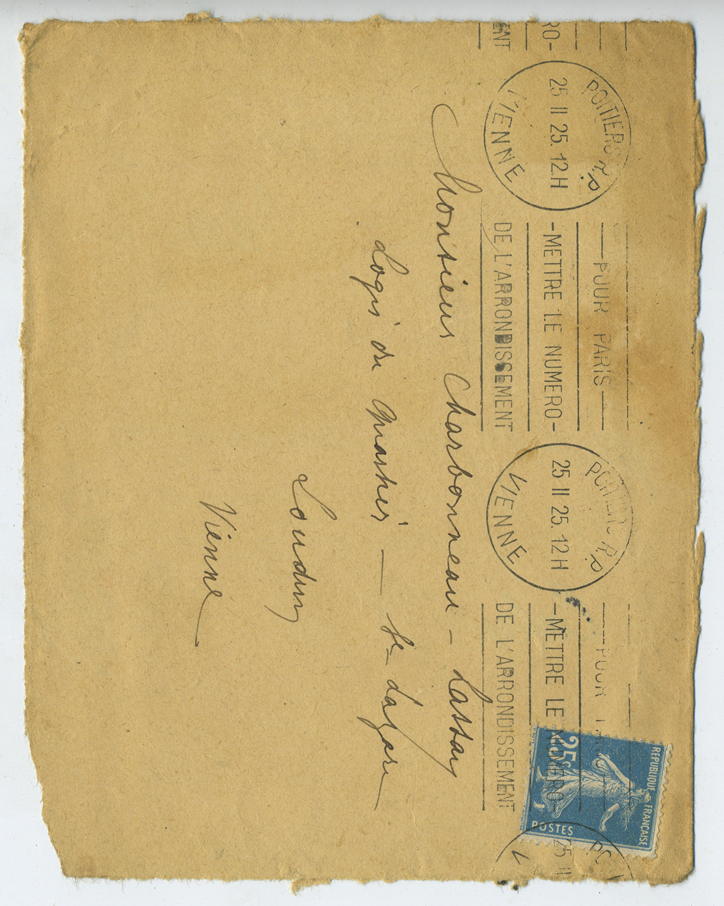 RO-
NT
POITIERS R.P
25 II 25. 12H
VIENNE
POUR PARIS
-METTRE LE NUMERO-
DE L'ARRONDISSEMENT
POITIERS R.P
25 II 25. 12H
VIENNE
POUR
-METTRE LE NUMERO-
DE L'ARRONDISSEMENT
PO
25 II
V
REPUBLIQUE FRANÇAISE
25c
POSTES
Monsieur Charbonneau-Lassay
Logis du — St Lazare
Loudun
Vienne